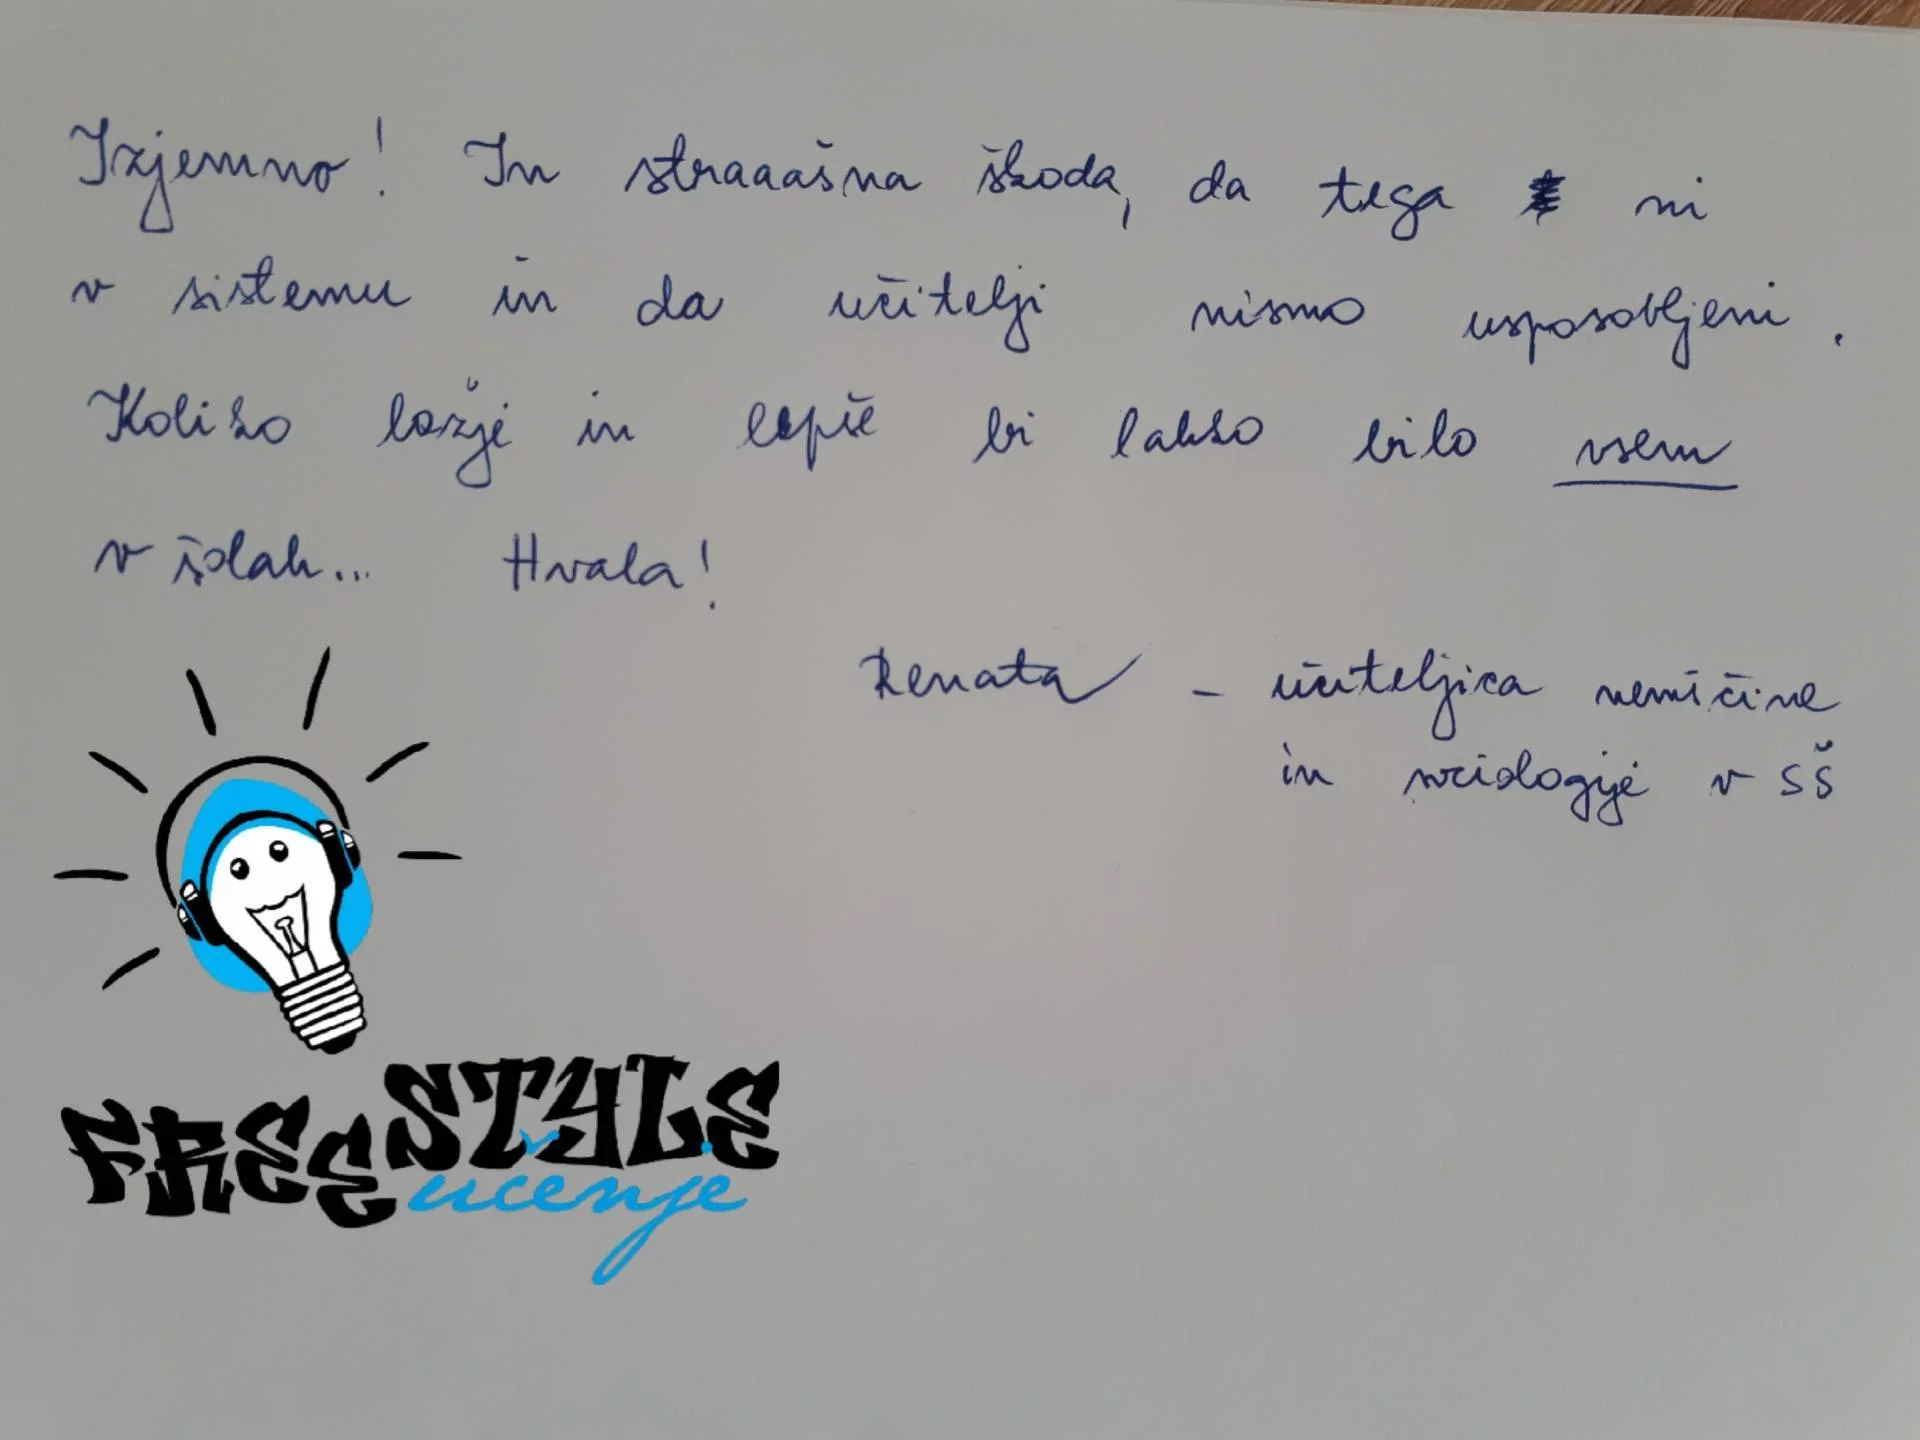 Izjemno! In straaašna škoda, da tega ni
v sistemu in da učitelji nismo usposobljeni.
Koliko lažje in lepše bi lahko bilo vsem
v šolah... Hvala!
Renata - učiteljica nemščine
in sociologije v SŠ
FREESTYLE
učenje